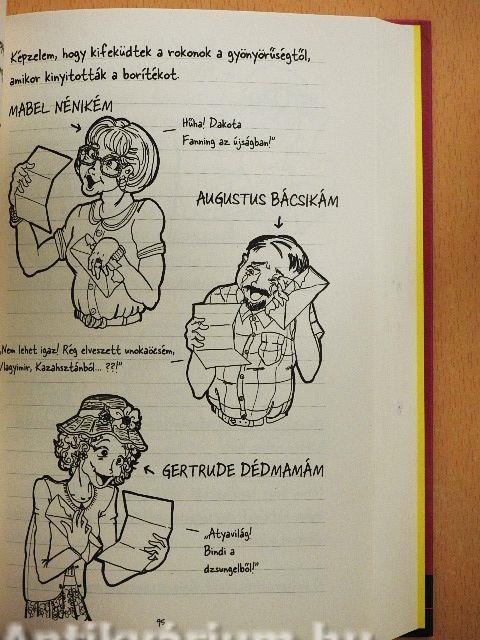 Képzelem, hogy kifeküdtek a rokonok a gyönyörűségtől,
amikor kinyitották a borítékot.
MABEL NÉNIKÉM
Hűha! Dakota
Fanning az újságban!"
AUGUSTUS BÁCSIKÁM
„Nem lehet igaz! Rég elveszett unokaöcsém,
Vlagyimir, Kazahsztánból... ??!"
GERTRUDE DÉDMAMÁM
„Atyavilág!
Bindi a
dzsungelből!"
95
Antikvárium.hu